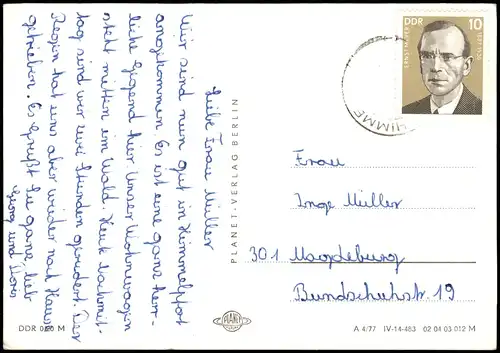 Liebe Frau Müller
Wir sind nun gut in Himmelpfort
angekommen. Es ist eine ganz herr-
liche Gegend hier. Unser Wohnwagen
steht mitten im Wald. Heute Nachmit-
tag sind wir zwei Stunden gerudert. Der
Regen hat uns aber wieder nach Hause
getrieben. Es grüßt Sie ganz lieb
Georg und Doris
PLANET-VERLAG BERLIN
PLANET
DDR 0,20 M
DDR 10
ERNST MAYER
HIMME
Frau
Inge Müller
301 Magdeburg
Bundschuhstr. 19
A 4/77 IV-14-483 02 04 03 012 M